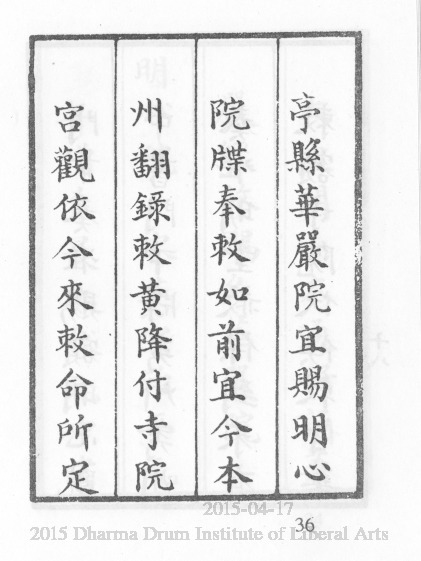 亭縣華嚴院宜賜明心
院牒奉敕如前宜令本
州翻錄敕黃降付寺院
宮觀依今來敕命所定
36
2015-04-17
2015 Dharma Drum Institute of Liberal Arts